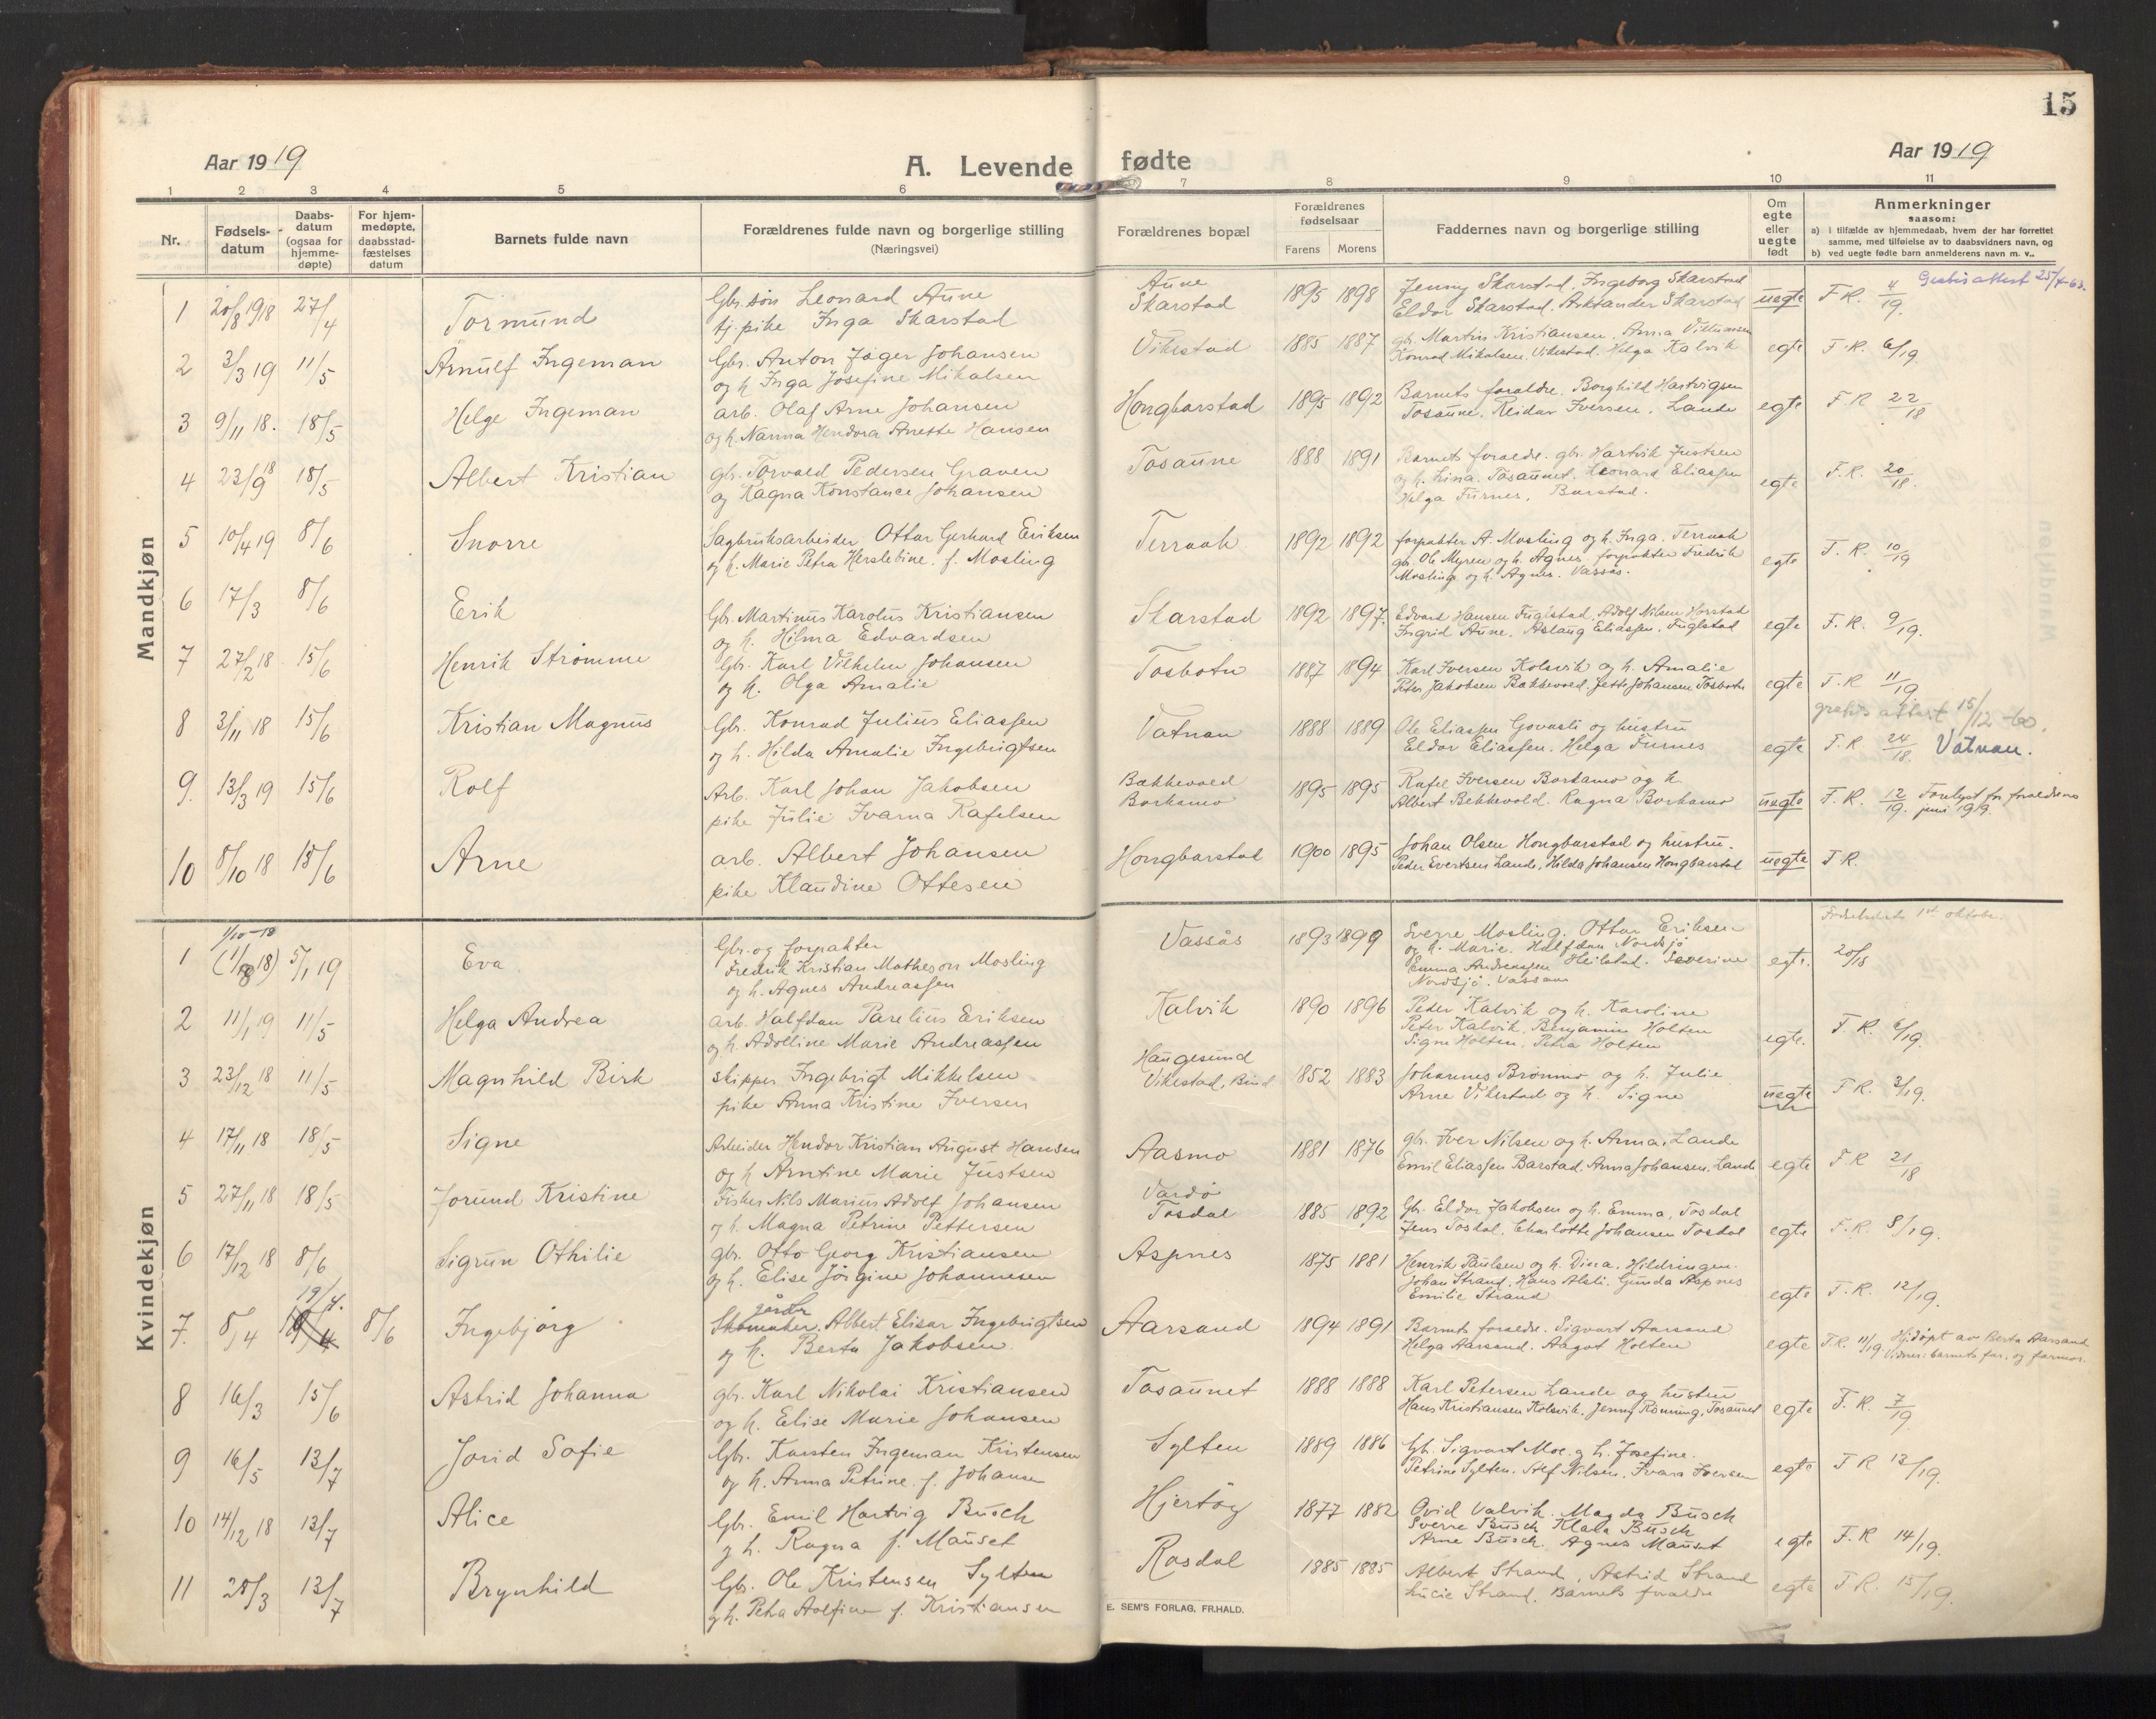 15
Aar 1919
A. Levende fødte
Aar 1919
1 2 3 4 5 6 7 8 9 10 11
Nr.
Fødsels-datum
Daabs-datum (ogsaa for hjemme-døpte)
For hjem-medøpte, daabsstad-fæstelses datum
Barnets fulde navn
Forældrenes fulde navn og borgerlige stilling
(Næringsvei)
Forældrenes bopæl
Forældrenes fødselsaar
Farens Morens
Faddernes navn og borgerlige stilling
Om egte eller uegte født
Anmerkninger
saasom:
a) i tilfælde av hjemmedaab, hvem der har forrettet
samme, med tilføielse av to daabsvidners navn, og
b) ved uegte fødte barn anmelderens navn m. v..
Mandkjøn
1 20/8 1918 27/4 Tormund Gbr. søn Leonard Aune Aune 1895 1898 Jenny Skarstad. Ingeborg Skarstad uegte F.R. 4/19. 25/4-63.
tj. pike Inga Skarstad Skarstad Eldor Skarstad. Skarstad
2 3/3 19 11/5 Arnulf Ingeman Gbr. Anton Jäger Johansen Vikestad 1885 1887 gb. Martin Kristiansen. Anna egte F.R. 6/19.
og h. Inga Josefine Mikalsen Konrad Mikalsen. Vikestad. Helga Kalvik
3 9/11 18. 18/5 Helge Ingeman arb. Olaf Arne Johansen Hongbarstad 1895 1892 Barnets foraldre. Borghild Hartvigsen egte F.R. 22/18
og h. Nanna Hendora Anette Hansen Tosaune. Reidar Iversen. Lande
4 23/9 18 18/5 Albert Kristian gbr. Torvald Pedersen Graven Tosaune 1888 1891 Barnets foraldre. gbr. Hartvik Justsen egte F.R. 20/18.
og Ragna Konstance Johansen og h. Lina. Tosaunet. Leonard Eliassen
Helga Furnes. Barstad.
5 10/4 19 8/6 Snorre Sagbruksarbeider Ottar Gerhard Eriksen Terraak 1892 1892 forpakter A. Mosling og h. Inga. Terraak egte F.R. 10/19
og h. Marie Petra Herslebine. f. Mosling gbr. Ole Myren og h. Agnes, forpakter Fredrik
Mosling og h. Agnes. Vassås.
6 17/3 8/6 Erik Gbr. Martinus Karolus Kristiansen Skarstad 1892 1897. Edvart Hansen Fuglstad. Adolf Nilsen Horstad egte F.R. 9/19.
og h. Hilma Edvardsen Ingrid Aune. Aslaug Eliassen. Fuglstad
7 27/2 18 15/6 Henrik Strømme Gbr. Karl Vilhelm Johansen Tosbotn 1887 1894 Karl Iversen Kolsvik og h. Amalie egte F.R. 11/19.
og h. Olga Amalie Peter Jakobsen Bakkevold. Jette Johansen Tosbotn
gratis attest 15/12-60.
8 3/11 18 15/6 Kristian Magnus Gbr. Konrad Julius Eliassen Vatnan 1888 1889 Ole Eliassen Govasli og hustru egte F.R. 24/18. Vatnan.
og h. Hilda Amalie Ingebrigtsen Eldor Eliassen. Helga Furnes
9. 13/3 19 15/6 Rolf Arb. Karl Johan Jakobsen Bakkevold 1895 1895 Rafel Iversen Borkamo og h. uegte F.R. 12/19. Forelyst for foraldrene
pike Julie Ivarna Rafelsen Borkamo Albert Bekkevold. Ragna Borkamo juni 1919.
10 8/10 18 15/6 Arne arb. Albert Johansen Hongbarstad 1900 1895 Johan Olsen Hongbarstad og hustru. uegte F.R.
pike Klaudine Ottesen Peder Evertsen Lande, Hilda Johansen Hongbarstad
Kvindekjøn
1/10-18 1st oktober.
1 (1/8 18) 5/1 19 Eva Gbr. og forpakter Vassås 1893 1899 Sverre Mosling. Ottar Eriksen egte. 20/18
Fredrik Kristian Matheson Mosling og h. Marie. Halfdan Nordsjö
og h. Agnes Andreassen Emma Andreassen Heilstad. Severine
Nordsjö. Vassaas
2 11/1 19 11/5 Helga Andrea arb. Halfdan Parelius Eriksen Kalvik 1890 1896 Peter Kalvik og h. Karoline egte. F.R. 2/19.
og h. Adolline Marie Andreassen Peter Kalvik. Benjamin Holten
Signe Holten, Petra Holten
3 23/12 18 11/5 Magnhild Birk skipper Ingebrigt Mikkelsen Haugesund 1852 1883 Johannes Brønmo og h. Julie uegte F.R. 3/19.
pike Anna Kristine Iversen Vikestad, Bind. Arne Vikestad og h. Signe
4 17/11 18 18/5 Signe Arbeider Hendor Kristian August Hansen Aasmo 1881 1876 gbr. Iver Nilsen og h. Anna. Lande egte F.R. 21/18
og h. Arntine Marie Justsen Emil Eliassen Barstad. Anna Johansen. Lande
5 27/11 18 18/5 Jorund Kristine Fisker Nils Marius Adolf Johansen Vardø 1885 1892 Gb. Eldor Jakobsen og h. Emma, Tosdal egte F.R. 8/19.
og h. Magna Petrine Pettersen Tosdal Jens Tosdal. Charlotte Johansen Tosdal
6 17/12 18 8/6 Sigrun Othilie gbr. Otto Georg Kristiansen Aspnes 1875 1881 Henrik Paulsen og h. Dina. Hildringen. egte F.R. 12/19.
og h. Elise Jørgine Johannesen Johan Strand. Hans Alsli. Gunda Aspnes
Emilie Strand
19/4.
7. 8/4 8/6 Ingebjørg Skomaker. Albert Elisar Ingebrigtsen Aarsand 1894 1891 Barnets foraldre. Sigvart Aarsand egte F.R. 11/19. Hj.døpt av Berta Aarsand
og h. Berta Jakobsen. Helga Aarsand. Aagot Holten Vidner: barnets far. og farmor.
8 16/3 15/6 Astrid Johanna gbr. Karl Nikolai Kristiansen Tosaunet 1888 1888 Karl Petersen Lande og hustru egte F.R. 7/19
og h. Elise Marie Johansen Hans Kristiansen Kolsvik. Jenny Rönning, Tosaunet
9 16/5 13/7 Jorid Sofie Gbr. Karsten Ingeman Kristensen Sylten 1889 1886 Gb. Sigvart Moe. og h. Josefine. egte F.R. 13/19.
og h. Anna Petrine. f. Johansen Petrine Sylten. Alf Nilsen. Ivara Iversen
10 14/12 18 13/7 Alice Gbr. Emil Hartvig Busch Hjertøy 1877 1882 Ovid Valvik. Magda Busch egte F.R 14/19.
og h. Ragna f. Mauset Sverre Busch Klara Busch
Arne Busch. Agnes Mauset
11 28/3 13/7 Brynhild Gbr. Ole Kristensen Sylten Rosdal 1885 1885 Albert Strand, Astrid Strand egte F.R. 15/19.
og h. Petra Adolfine f. Kristiansen Lucie Strand. Barnets foraldre
E. SEM'S FORLAG, FR.HALD.